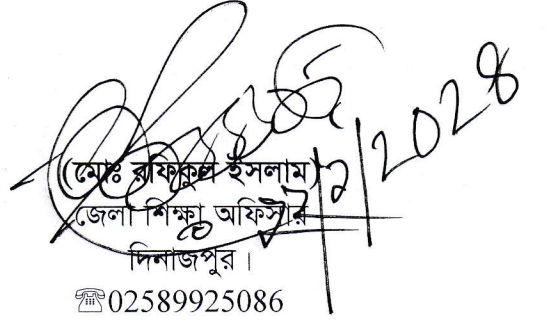 (মোঃ রফিকুল ইসলাম)
জেলা শিক্ষা অফিসার
দিনাজপুর।
☎02589925086